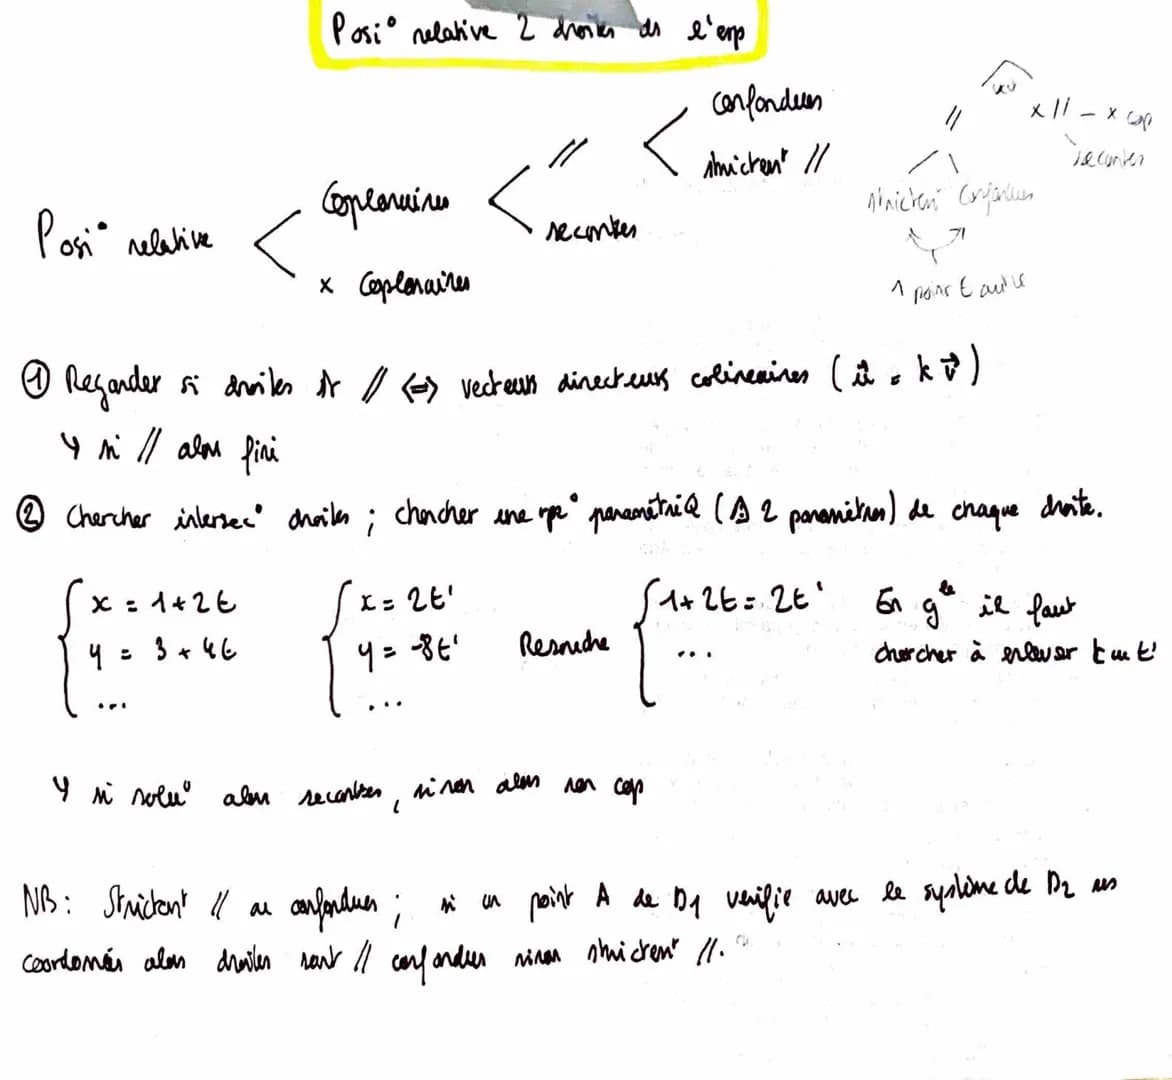 Posi° relative 2 droites ds l'esp
Posi° relative
Coplanaires
x Coplanaires
//
secantes
confondues
strictent //
//
x // - x cop
secantes
strictent Confondues
1 point E autre
① Regarder si droites st // <=> vecteurs directeurs colineaires (u⃗ = k v⃗)
↳ si // alors fini
② Chercher intersec° droites ; chercher une rpz° paramétriQ (⚠ 2 paramètres) de chaque droite.
{ x = 1 + 2t
y = 3 + 4t
...
{ x = 2t'
y = -8t'
...
Resoudre
{ 1 + 2t = 2t'
...
En gle il faut
chercher à enlever t ou t'
↳ si solu° alors secantes, sinon alors non cop
NB : Strictent // ou confondues ; si un point A de D1 verifie avec le système de D2 ses
coordonnés alors droites sont // confondues sinon strictent //.